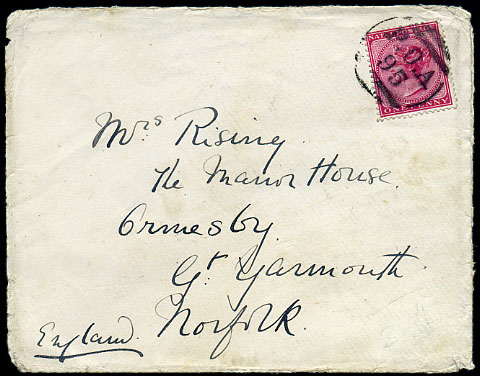 NATAL
ONE PENNY
95
Mrs Rising.
The Manor House.
Ormesby.
Gt. Yarmouth.
Norfolk.
England.